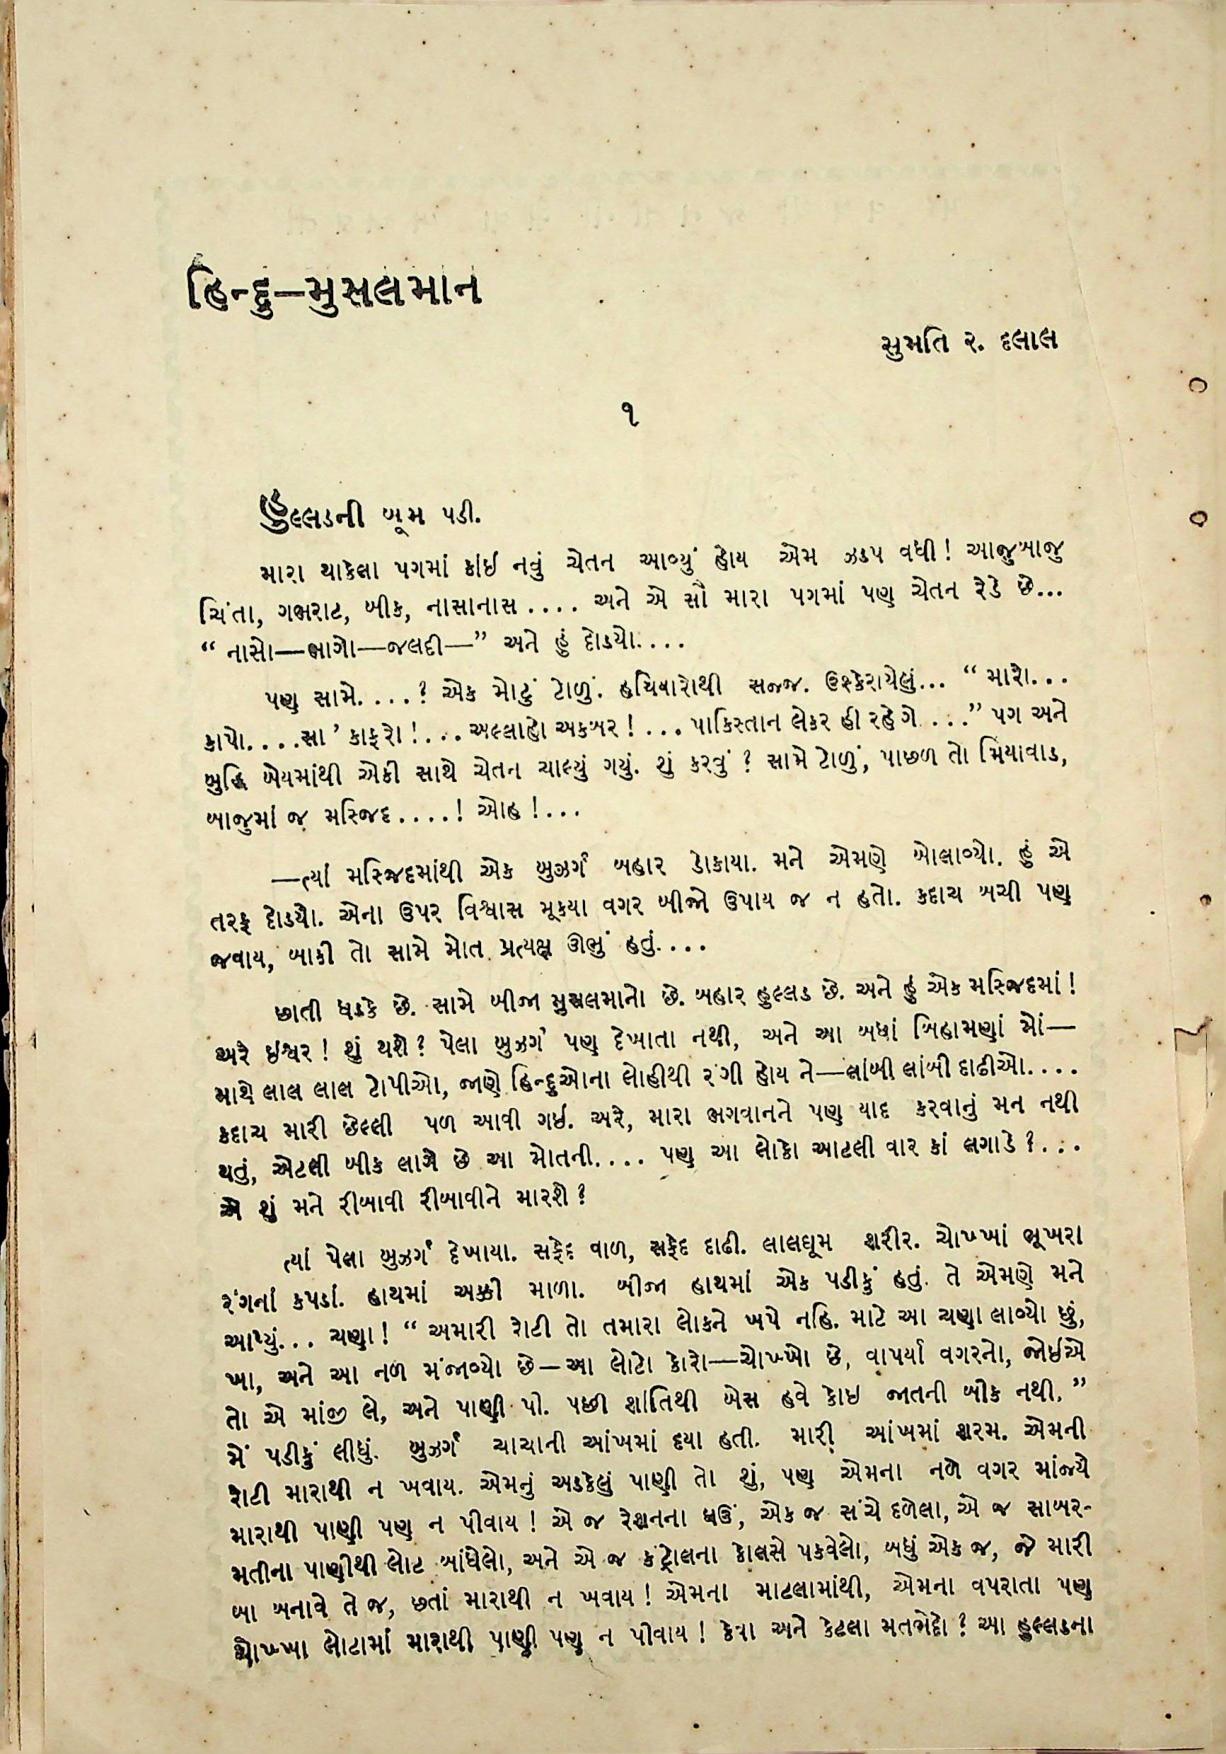 હિન્દુ—મુસલમાન
સુમતિ ર. દલાલ
૧
હુલ્લડની બૂમ પડી.
મારા થાકેલા પગમાં કાંઇ નવું ચેતન આવ્યું હોય એમ ઝડપ વધી! આજુબાજુ
ચિંતા, ગભરાટ, બીક, નાસાનાસ.... અને એ સૌ મારા પગમાં પણ ચેતન રેડે છે...
“ નાસો—ભાગો—જલદી—” અને હું દોડયો....
પણ સામે....? એક મોટું ટોળું. હથિયારોથી સજ્જ. ઉશ્કેરાયેલું... “ મારો...
કાપો....સા’ કાફરો!... અલ્લાહો અકબર!... પાકિસ્તાન લેકર હી રહેગે ...” પગ અને
બુદ્ધિ બેયમાંથી એકી સાથે ચેતન ચાલ્યું ગયું. શું કરવું? સામે ટોળું, પાછળ તો મિયાવાડ,
બાજુમાં જ મસ્જિદ....! ઓહ!...
—ત્યાં મસ્જિદમાંથી એક બુઝર્ગ બહાર ડોકાયા. મને એમણે બોલાવ્યો. હું એ
તરફ દોડયો. એના ઉપર વિશ્વાસ મૂકયા વગર બીજો ઉપાય જ ન હતો. કદાચ બચી પણ
જવાય, બાકી તો સામે મોત પ્રત્યક્ષ ઊભું હતું....
છાતી ધડકે છે. સામે બીજા મુસલમાનો છે. બહાર હુલ્લડ છે. અને હું એક મસ્જિદમાં!
અરે ઇશ્વર! શું થશે? પેલા બુઝર્ગ પણ દેખાતા નથી, અને આ બધાં બિહામણાં મોં—
માથે લાલ લાલ ટોપીઓ, જાણે હિન્દુઓના લોહીથી રંગી હોય ને—લાંબી લાંબી દાઢીઓ....
કદાચ મારી છેલ્લી પળ આવી ગઇ. અરે, મારા ભગવાનને પણ યાદ કરવાનું મન નથી
થતું, એટલી બીક લાગે છે આ મોતની.... પણ આ લોકો આટલી વાર કાં લગાડે?...
એ શું મને રીબાવી રીબાવીને મારશે?
ત્યાં પેલા બુઝર્ગ દેખાયા. સફેદ વાળ, સફેદ દાઢી. લાલઘૂમ શરીર. ચોખ્ખાં ભૂખરા
રંગનાં કપડાં. હાથમાં અક્કી માળા. બીજા હાથમાં એક પડીકું હતું. તે એમણે મને
આપ્યું... ચણા! “ અમારી રોટી તો તમારા લોકને ખપે નહિ. માટે આ ચણા લાવ્યો છું,
ખા, અને આ નળ મંજાવ્યો છે—આ લોટો કોરો—ચોખ્ખો છે, વાપર્યા વગરનો, જોઈએ
તો એ માંજી લે, અને પાણી પી. પછી શાંતિથી બેસ હવે કોઇ જાતની બીક નથી.”
મેં પડીકું લીધું. બુઝર્ગ ચાચાની આંખમાં દયા હતી. મારી આંખમાં શરમ. એમની
રોટી મારાથી ન ખવાય. એમનું અડકેલું પાણી તો શું, પણ એમના નળે વગર માંજ્યે
મારાથી પાણી પણ ન પીવાય! એ જ રેશનના ઘઉં, એક જ સંચે દળેલા, એ જ સાબર-
મતીના પાણીથી લોટ બાંધેલો, અને એ જ કંટ્રોલના કોલસે પકવેલો, બધું એક જ, જે મારી
બા બનાવે તે જ, છતાં મારાથી ન ખવાય! એમના માટલામાંથી, એમના વપરાતા પણ
ચોખ્ખા લોટામાં મારાથી પાણી પણ ન પીવાય! કેવા અને કેટલા મતભેદો? આ હુલ્લડના